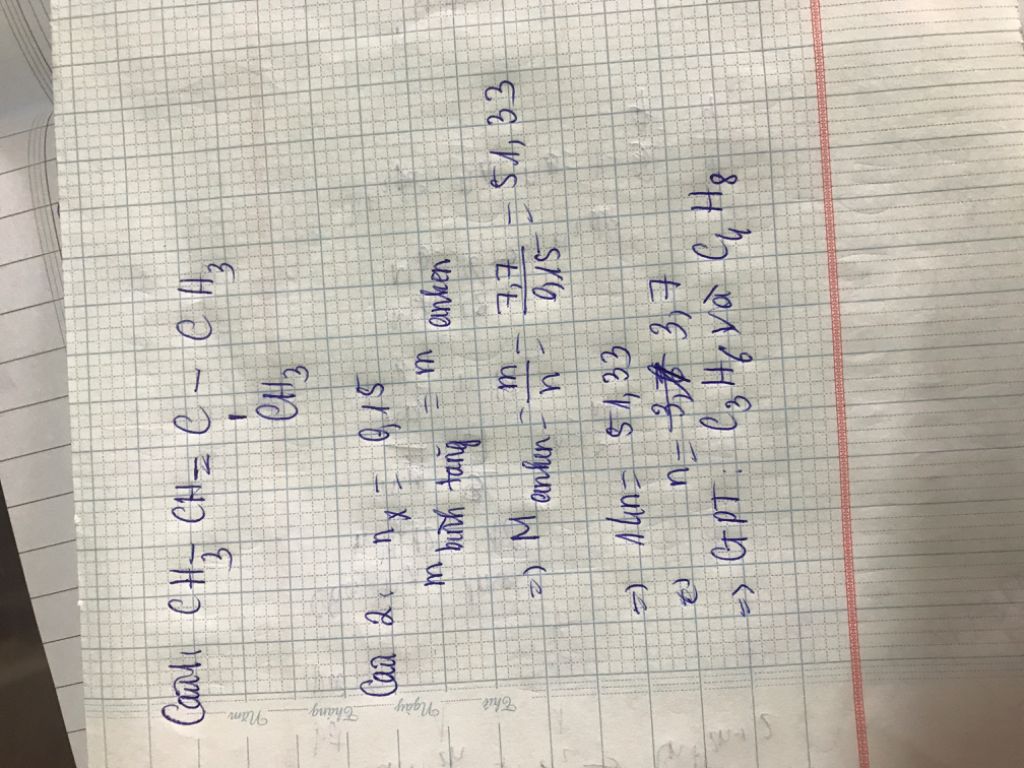 Câu 1, CH3 - CH = C - CH3
CH3
Câu 2, nx = 0,15
m bình tăng = m anken
=> M anken = m/n = 7,7/0,15 = 51,33
=> 14n = 51,33
<=> n = 3,7
=> CTPT: C3H6 và C4H8
Thứ
Ngày
Tháng
Năm